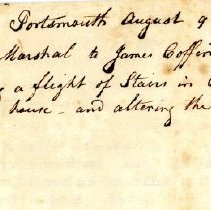 Portsmouth August 9
Marshal to James Coffin
a flight of Stairs in
house - and altering the